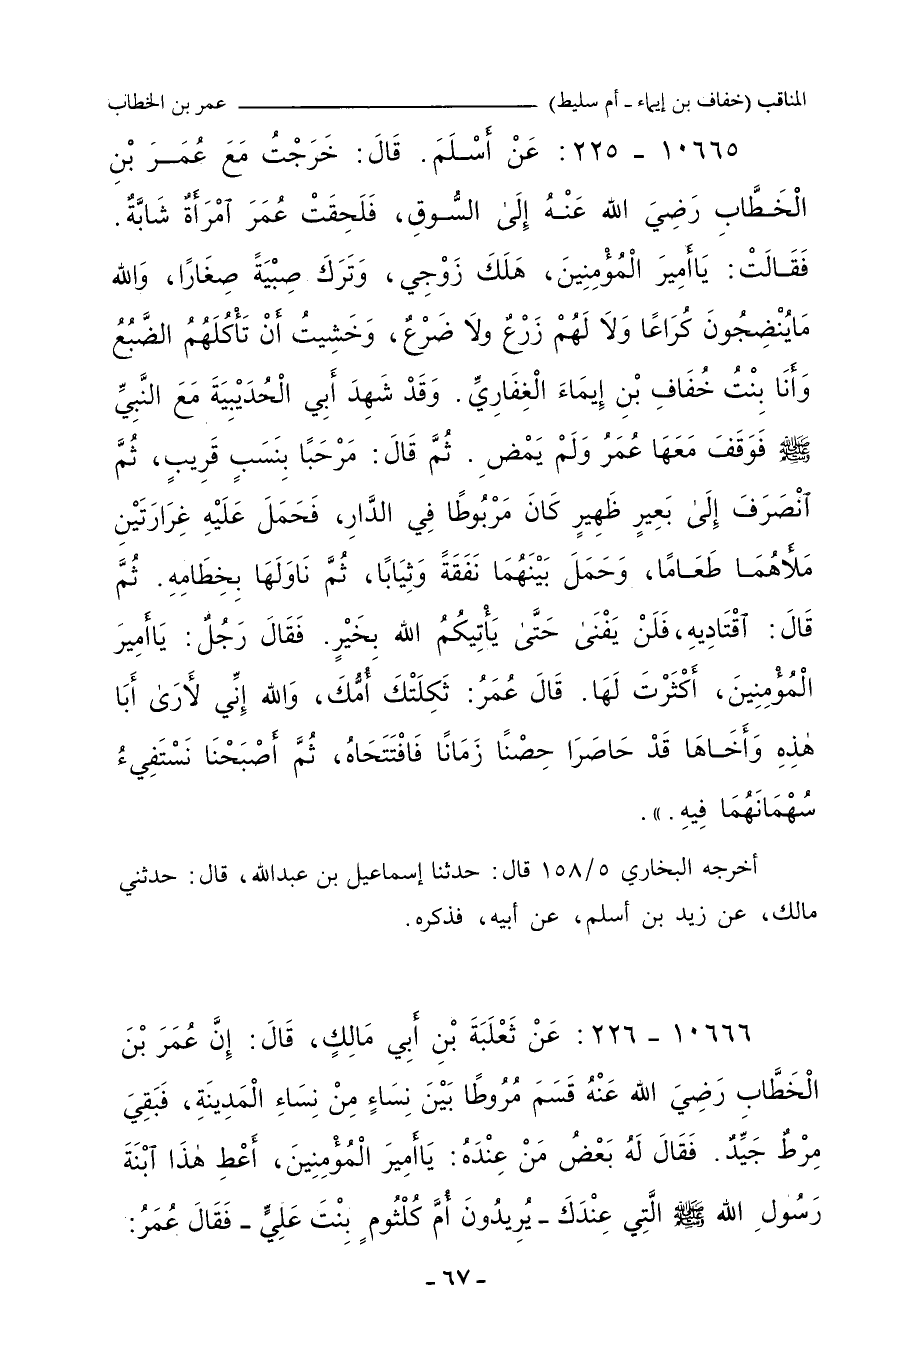 المناقب (خفاف بن إيماء - أم سليط) ــــــــ عمر بن الخطاب
١٠٦٦٥ - ٢٢٥ : عَنْ أَسْلَمَ . قَالَ : خَرَجْتُ مَعَ عُمَرَ بْنِ
الْخَطَّابِ رَضِيَ الله عَنْهُ إِلَىٰ السُّوقِ ، فَلَحِقَتْ عُمَرَ ٱمْرَأَةٌ شَابَّةٌ .
فَقَالَتْ : يَاأَمِيرَ الْمُؤْمِنِينَ ، هَلَكَ زَوْجِي ، وَتَرَكَ صِبْيَةً صِغَارًا ، وَالله
مَايُنْضِجُونَ كُرَاعًا وَلَا لَهُمْ زَرْعٌ ولَا ضَرْعٌ ، وَخَشِيتُ أَنْ تَأْكُلَهُمُ الضَّبُعُ
وَأَنَا بِنْتُ خُفَافِ بْنِ إِيمَاءَ الْغِفَارِيِّ . وَقَدْ شَهِدَ أَبِي الْحُدَيْبِيَةَ مَعَ النَّبِيِّ
ﷺ فَوَقَفَ مَعَهَا عُمَرُ وَلَمْ يَمْضِ . ثُمَّ قَالَ : مَرْحَبًا بِنَسَبٍ قَرِيبٍ ، ثُمَّ
ٱنْصَرَفَ إِلَىٰ بَعِيرٍ ظَهِيرٍ كَانَ مَرْبُوطًا فِي الدَّارِ ، فَحَمَلَ عَلَيْهِ غِرَارَتَيْنِ
مَلَأَهُمَا طَعَامًا ، وَحَمَلَ بَيْنَهُمَا نَفَقَةً وَثِيَابًا ، ثُمَّ نَاوَلَهَا بِخِطَامِهِ . ثُمَّ
قَالَ : ٱقْتَادِيهِ ، فَلَنْ يَفْنَىٰ حَتَّىٰ يَأْتِيكُمُ الله بِخَيْرٍ . فَقَالَ رَجُلٌ : يَاأَمِيرَ
الْمُؤْمِنِينَ ، أَكْثَرْتَ لَهَا . قَالَ عُمَرُ : ثَكِلَتْكَ أُمُّكَ ، وَالله إِنِّي لَأَرَىٰ أَبَا
هٰذِهِ وَأَخَاهَا قَدْ حَاصَرَا حِصْنًا زَمَانًا فَافْتَتَحَاهُ ، ثُمَّ أَصْبَحْنَا نَسْتَفِيءُ
سُهْمَانَهُمَا فِيهِ . » .
أخرجه البخاري ١٥٨/٥ قال : حدثنا إسماعيل بن عبدالله ، قال : حدثني
مالك ، عن زيد بن أسلم ، عن أبيه ، فذكره .
١٠٦٦٦ - ٢٢٦ : عَنْ ثَعْلَبَةَ بْنِ أَبِي مَالِكٍ ، قَالَ : إِنَّ عُمَرَ بْنَ
الْخَطَّابِ رَضِيَ الله عَنْهُ قَسَمَ مُرُوطًا بَيْنَ نِسَاءٍ مِنْ نِسَاءِ الْمَدِينَةِ ، فَبَقِيَ
مِرْطٌ جَيِّدٌ . فَقَالَ لَهُ بَعْضُ مَنْ عِنْدَهُ : يَاأَمِيرَ الْمُؤْمِنِينَ ، أَعْطِ هٰذَا ٱبْنَةَ
رَسُولِ الله ﷺ الَّتِي عِنْدَكَ - يُرِيدُونَ أُمَّ كُلْثُومٍ بِنْتَ عَلِيٍّ - فَقَالَ عُمَرُ :
- ٦٧ -